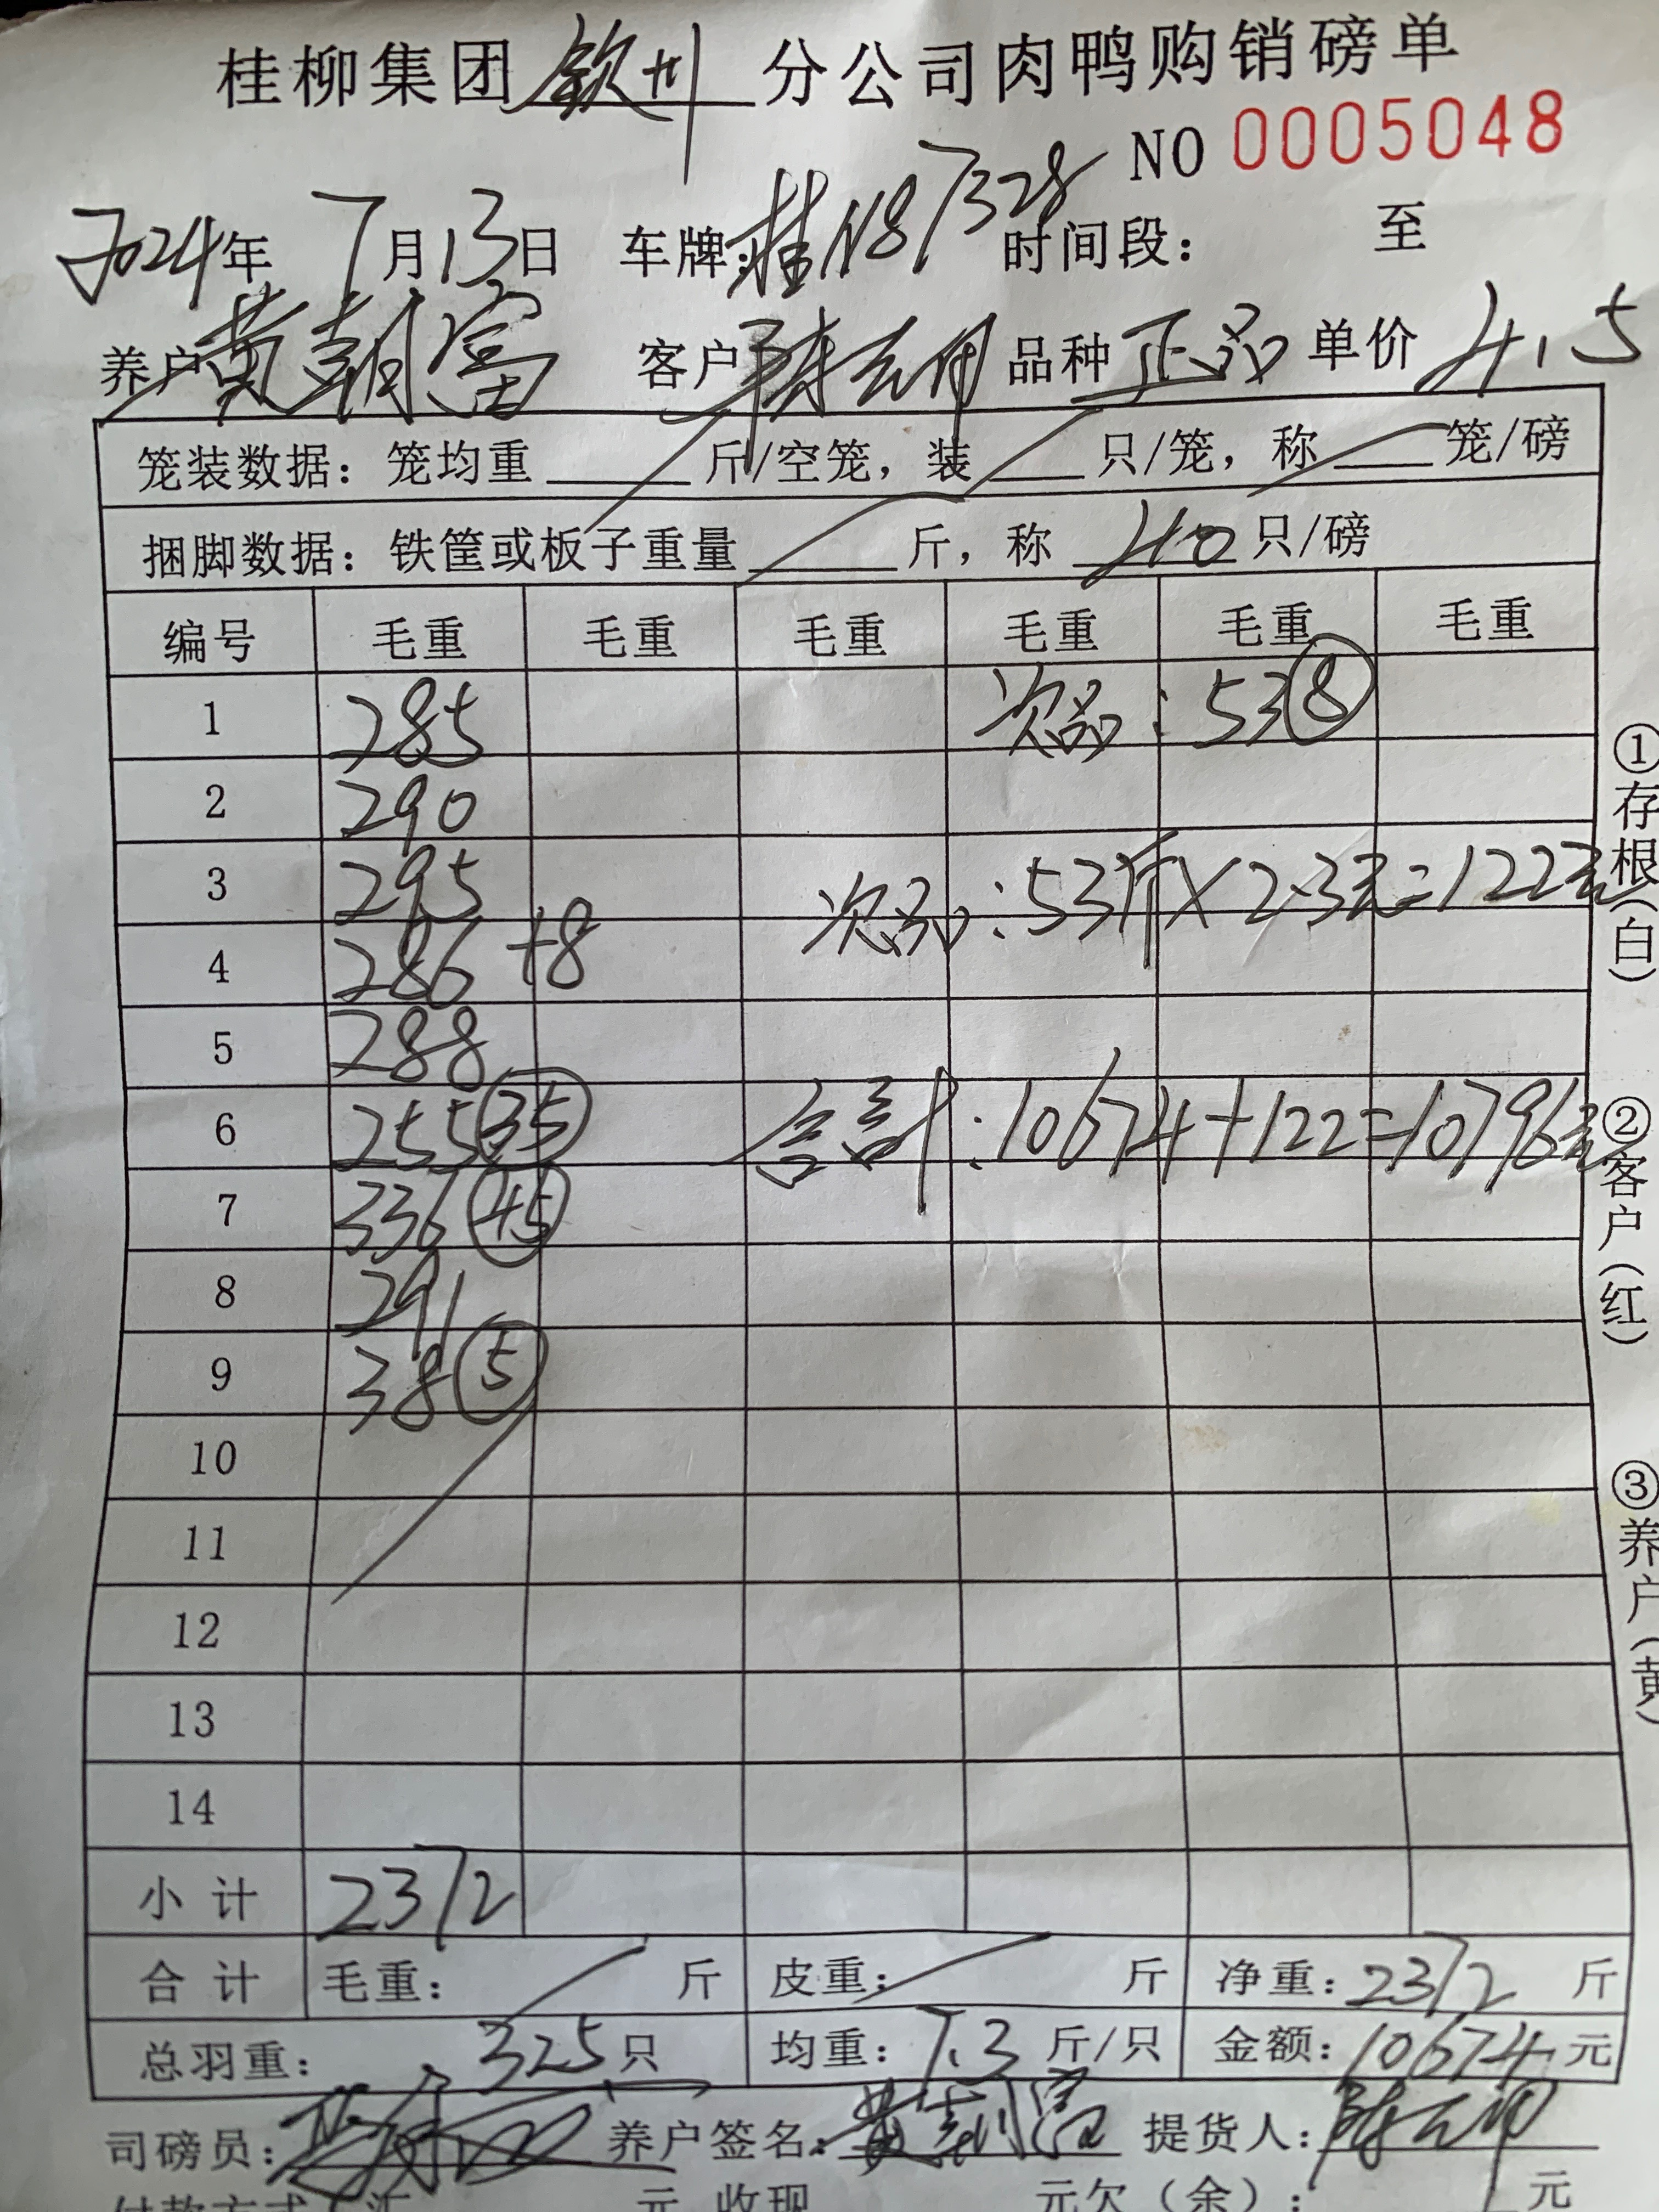 桂柳集团钦州分公司肉鸭购销磅单
NO 0005048
2024年 7月13日 车牌:桂N87328 时间段: 至
养户 黄朝富 客户 陈 品种 正品 单价 4.5
笼装数据: 笼均重 斤/空笼, 装 只/笼, 称 笼/磅
捆脚数据: 铁筐或板子重量 斤, 称 40 只/磅
编号 毛重 毛重 毛重 毛重 毛重 毛重
1 285 次品: 53 8
2 290
3 295 次品:53斤×2.3元=122元
4 286 +8
5 288
6 255 35 合计:10674+122=10796元
7 336 45
8 291
9 38 5
10
11
12
13
14
小计 2372
合计 毛重: 斤 皮重: 斤 净重: 2372 斤
总羽重: 325只 均重: 7.3 斤/只 金额: 10674元
司磅员: 养户签名: 黄朝富 提货人: 陈
付款方式 汇 元 收现 元欠(余): 元
①存根(白)
②客户(红)
③养户(黄)